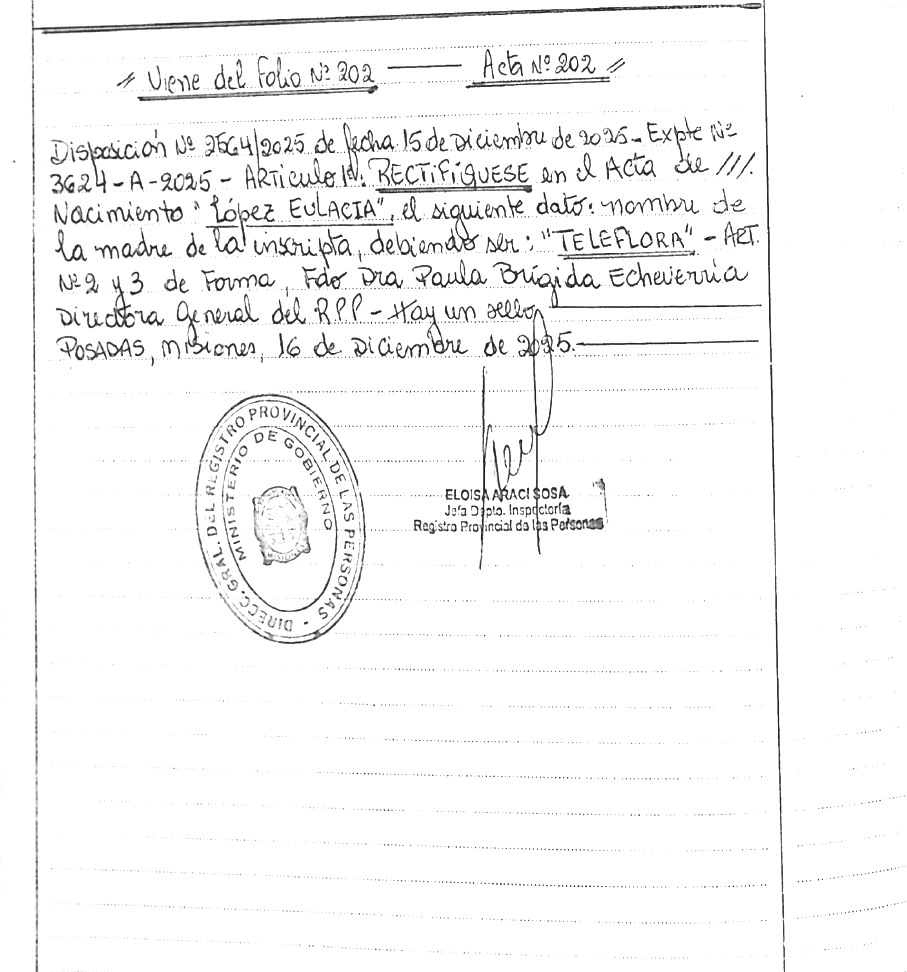 〃 Viene del Folio Nº 202 —— Acta Nº 202 〃
Disposición Nº 2564/2025 de fecha 15 de Diciembre de 2025 - Expte Nº
3624-A-2025 - Artículo 1º: RECTIFÍQUESE en el Acta de ///.
Nacimiento "López EULACIA", el siguiente dato: nombre de
la madre de la inscripta, debiendo ser: "TELEFLORA" - ART.
Nº 2 y 3 de Forma, Fdo Dra Paula Brígida Echeverría
Directora General del RPP - Hay un sello
POSADAS, Misiones, 16 de Diciembre de 2025.-
DIRECC. GRAL. DEL REGISTRO PROVINCIAL DE LAS PERSONAS -
MINISTERIO DE GOBIERNO
ELOISA ARACI SOSA
Jefa Dpto. Inspectoría
Registro Provincial de las Personas